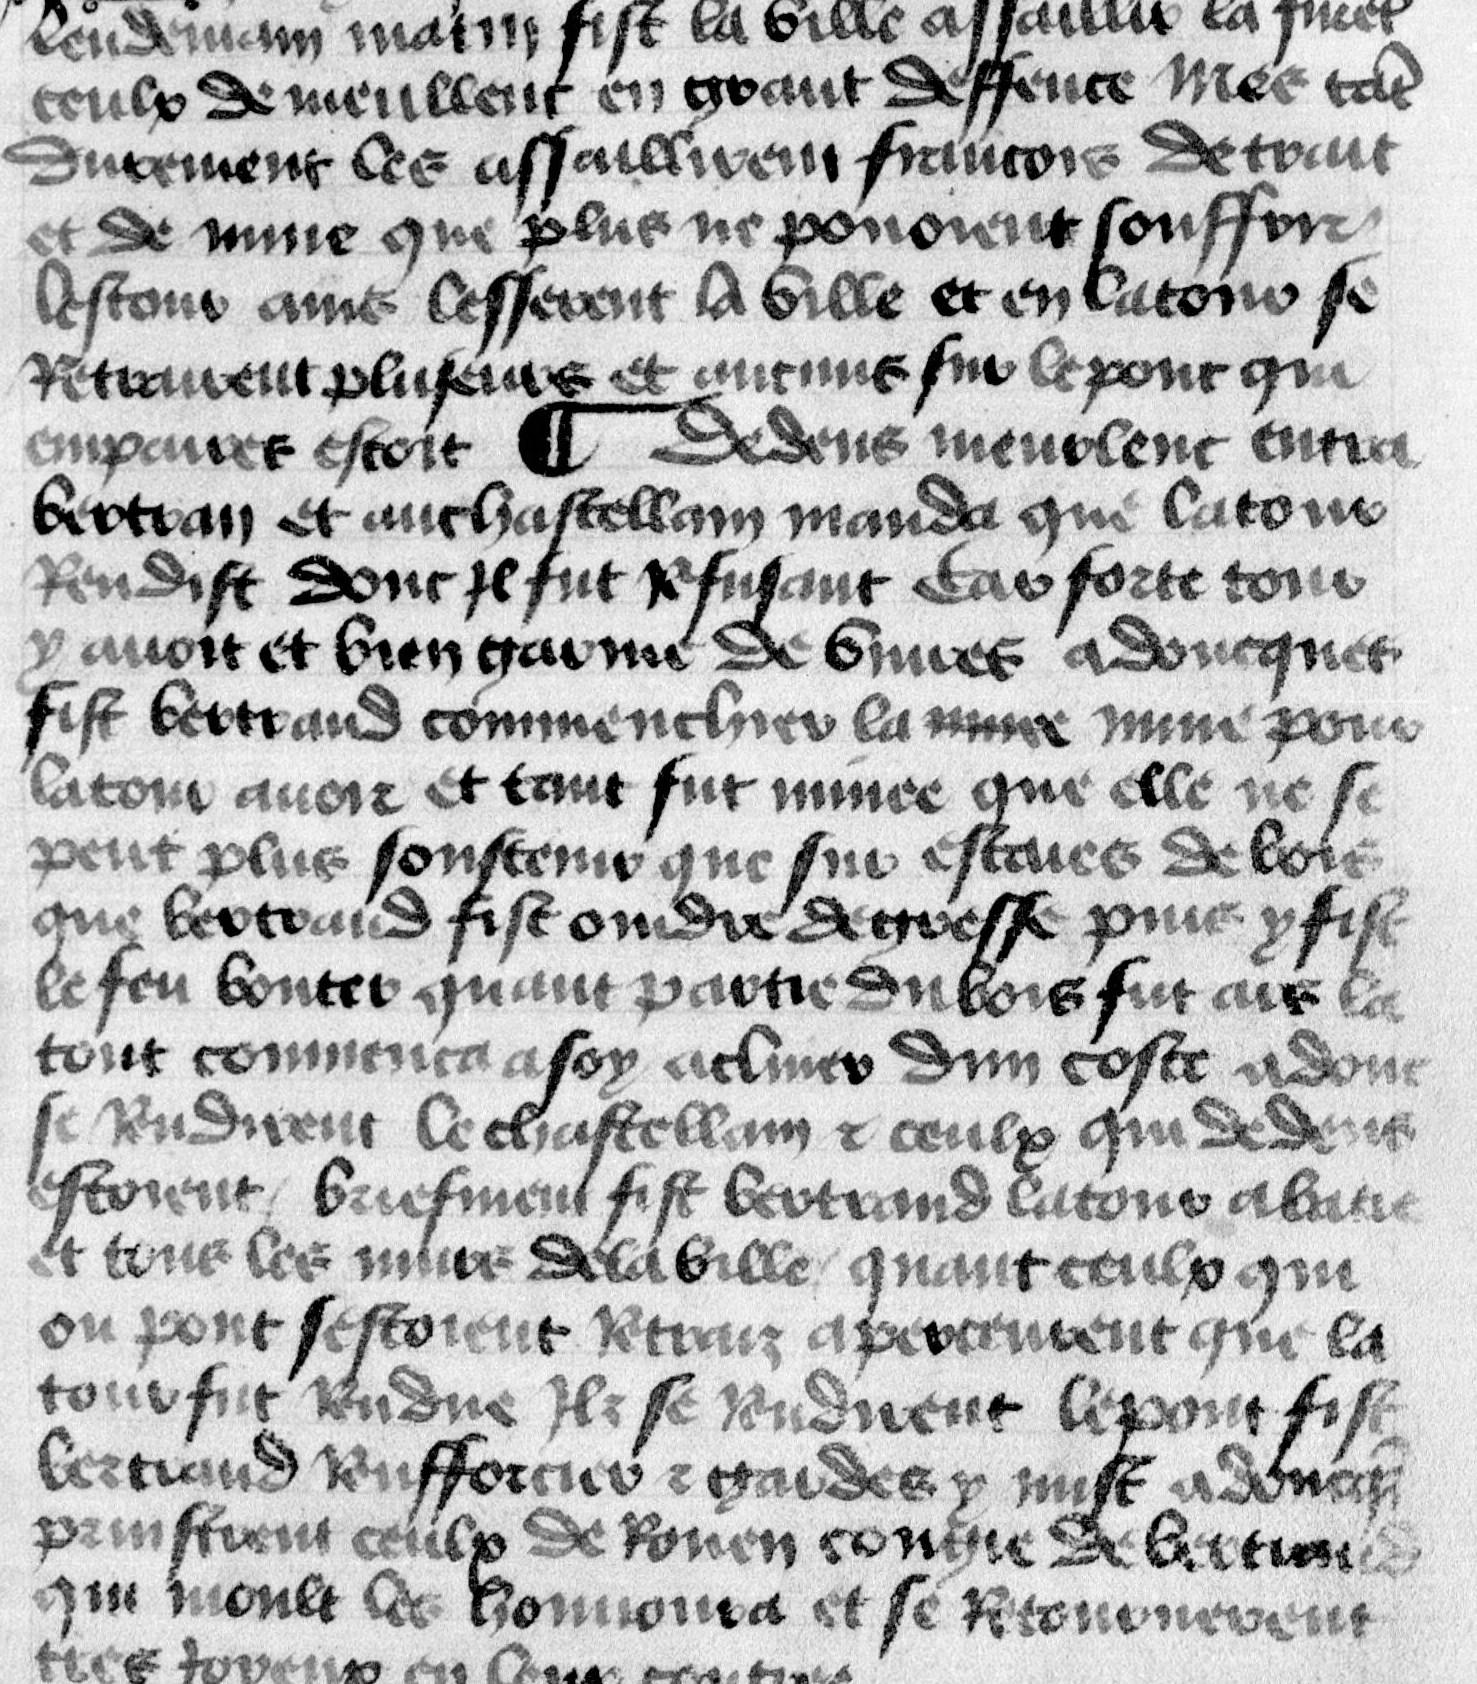 Lendemain matin fist la ville assaillir la furet
ceulx de meullent en grant deffence Mes tat
Durement les assaillirent francois de trait
et de mine que plus ne pouoient souffrir
lestour ains lesserent la ville et en latour se
Retrairent pluseurs et aucuns sur le pont qui
empares estoit ¶ Dedens meurlent entra
bertran et au chastellain manda que latour
Rendist dont Il fut Refusant Car forte tour
y auoit et bien garnie de viures adoncques
fist bertrand commenchier la mine pour
latour auoir et tant fut minee que elle ne se
peut plus soustenir que sur estaies de bois
que bertrand fist oindre de gresse puis y fist
le feu bouter quant partie du bois fut ars la
tour commenca a soy acliner dun coste adonc
se Rendirent le chastellain ⁊ ceulx qui dedens
estoient / briefment fist bertrand latour abatre
et tous les murs dela ville / quant ceulx qui
ou pont sestoient Retraiz aperceurent que la
tour fut Rendue Ilz se Rendirent le pont fist
bertrand Renfforcier ⁊ gardes y mist adoncq̃
prinstrent ceulx de Rouen congie de bertrand
qui moult les honnoura et se Retournerent
tres Joyeux en leur